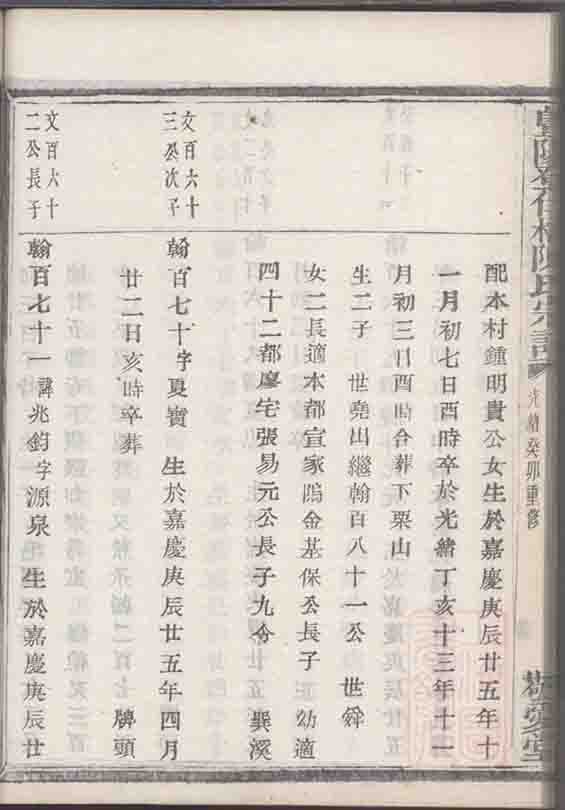 陳氏宗譜
光緒癸卯重修
配本村鍾明貴公女生於嘉慶庚辰廿五年十
一月初七日酉時卒於光緒丁亥十三年十一
月初三日酉時合葬下栗山
生二子　世堯出繼翰百八十一公　世舜
女二長適本都宣家塢金基保公長子　幼適
四十二都廖宅張易元公長子九令　巽溪
文百六十
三公次子
翰百七十字夏寶　生於嘉慶庚辰廿五年四月
廿二日亥時卒葬　牌頭
文百六十
二公長子
翰百七十一諱兆鈞字源泉　生於嘉慶庚辰廿